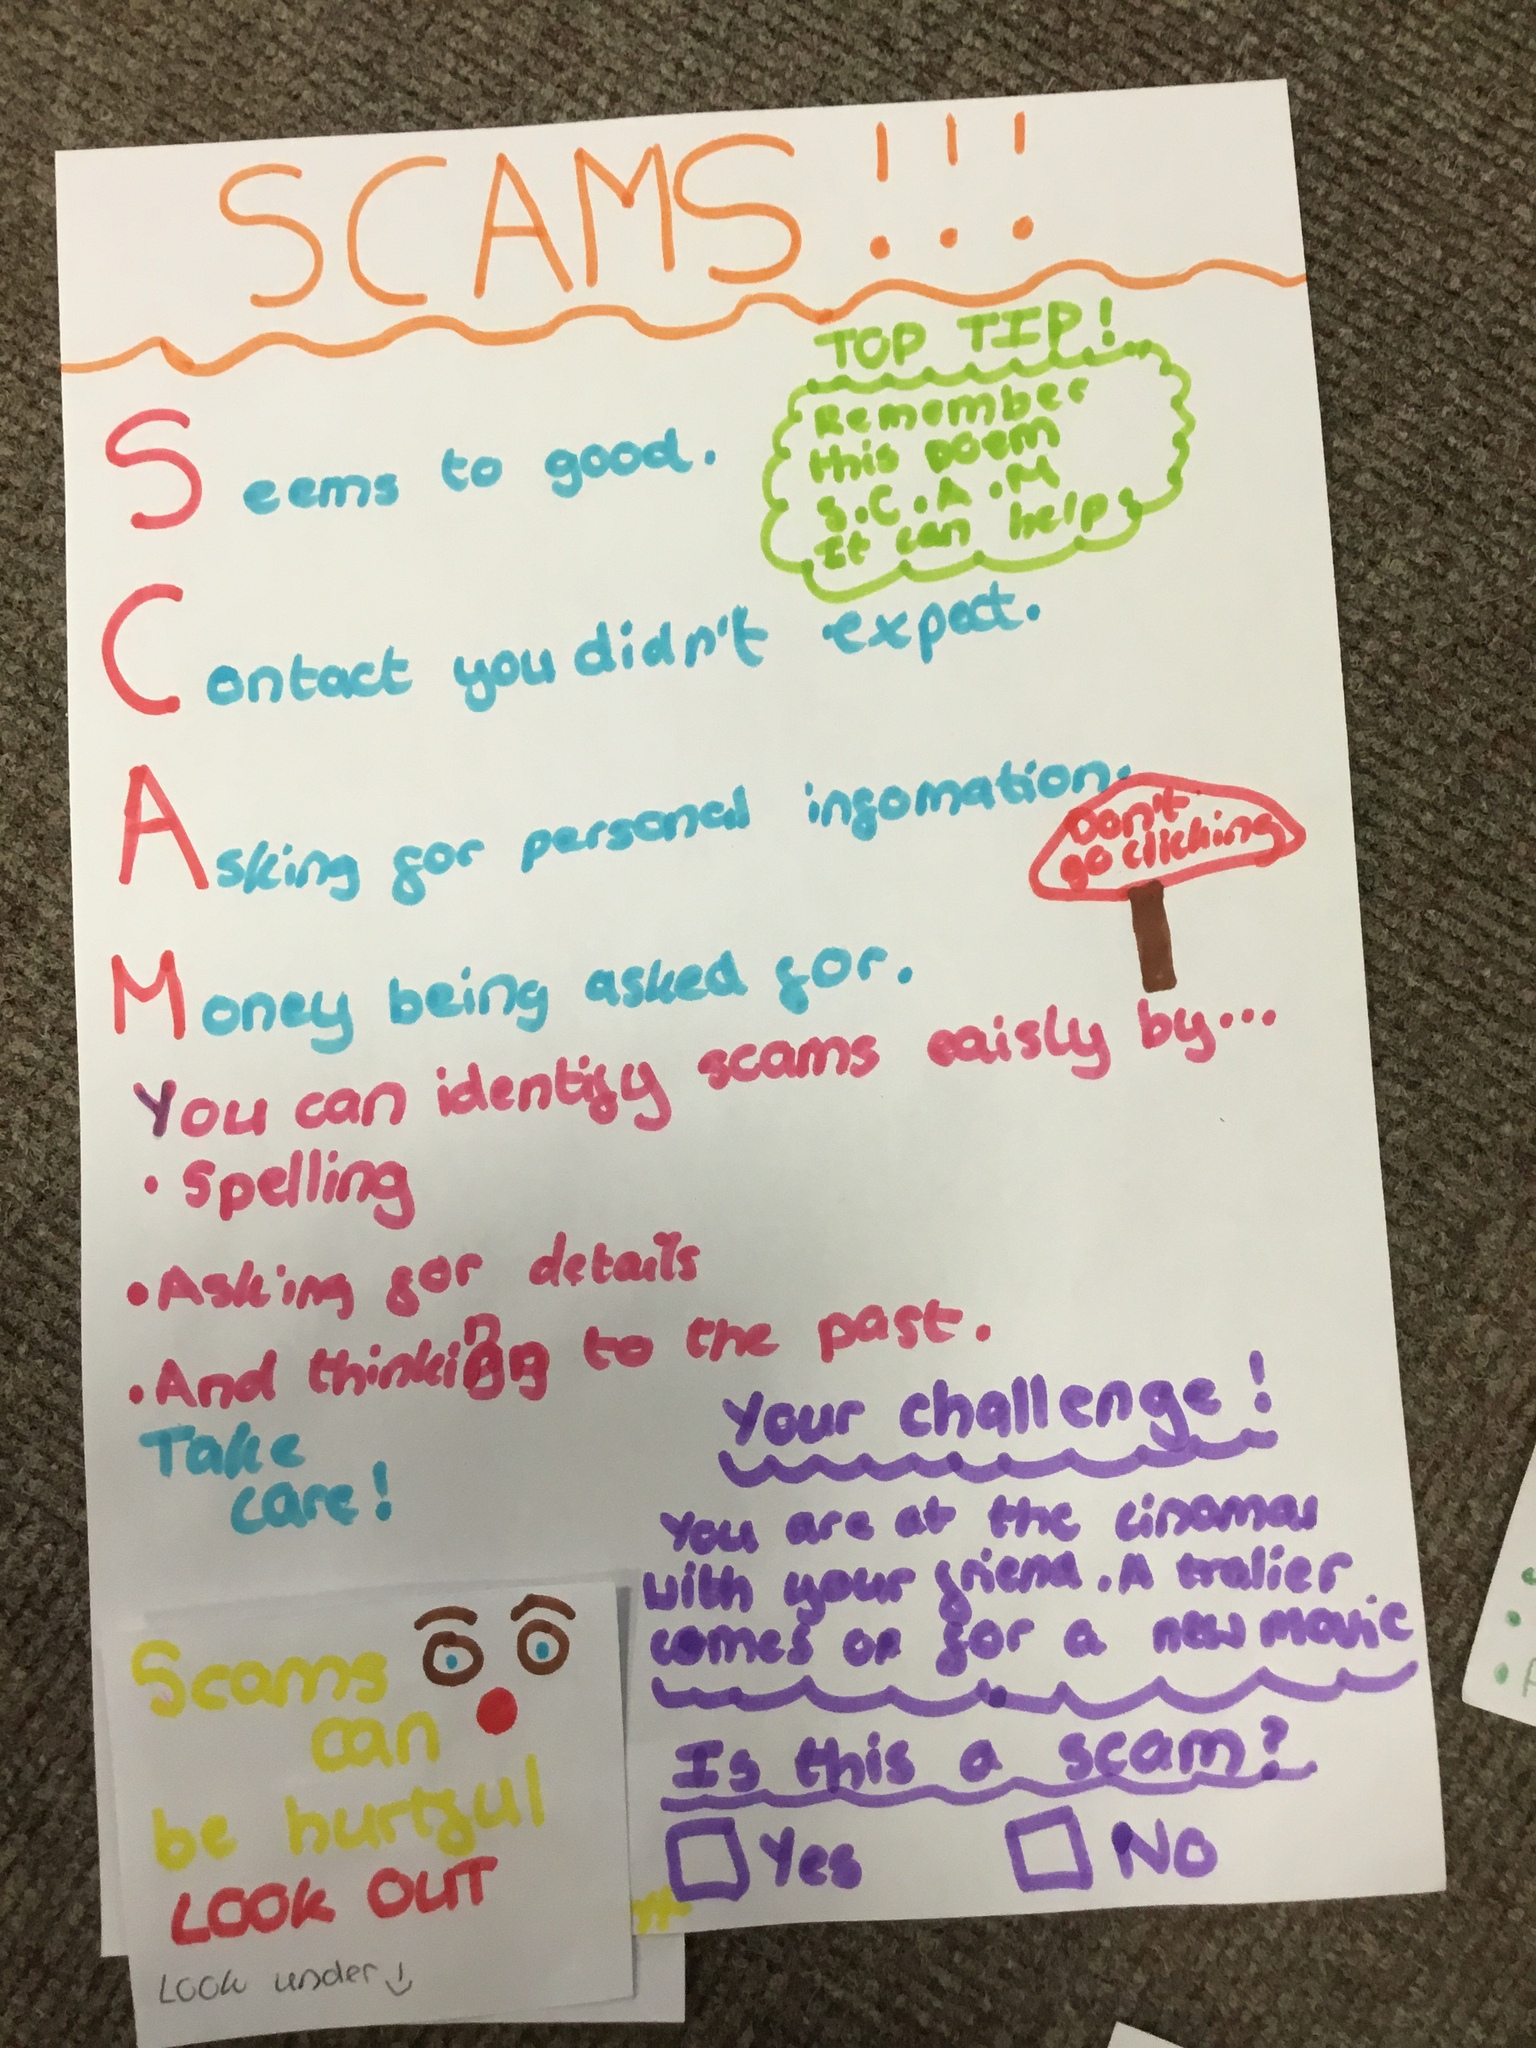 SCAMS!!!
TOP TIP!
Remember
this poem
S.C.A.M
It can help
Seems to good.
Contact you didn't expect.
Asking for personal infomation.
Don't
go clicking
Money being asked for.
You can identify scams eaisly by...
• Spelling
• Asking for details
• And thinking to the past.
Take
care!
Your challenge!
You are at the cinamas
with your friend. A tralier
comes on for a new movie
Is this a scam?
Yes
No
Scams
can
be hurtful
LOOK OUT
Look under ↓